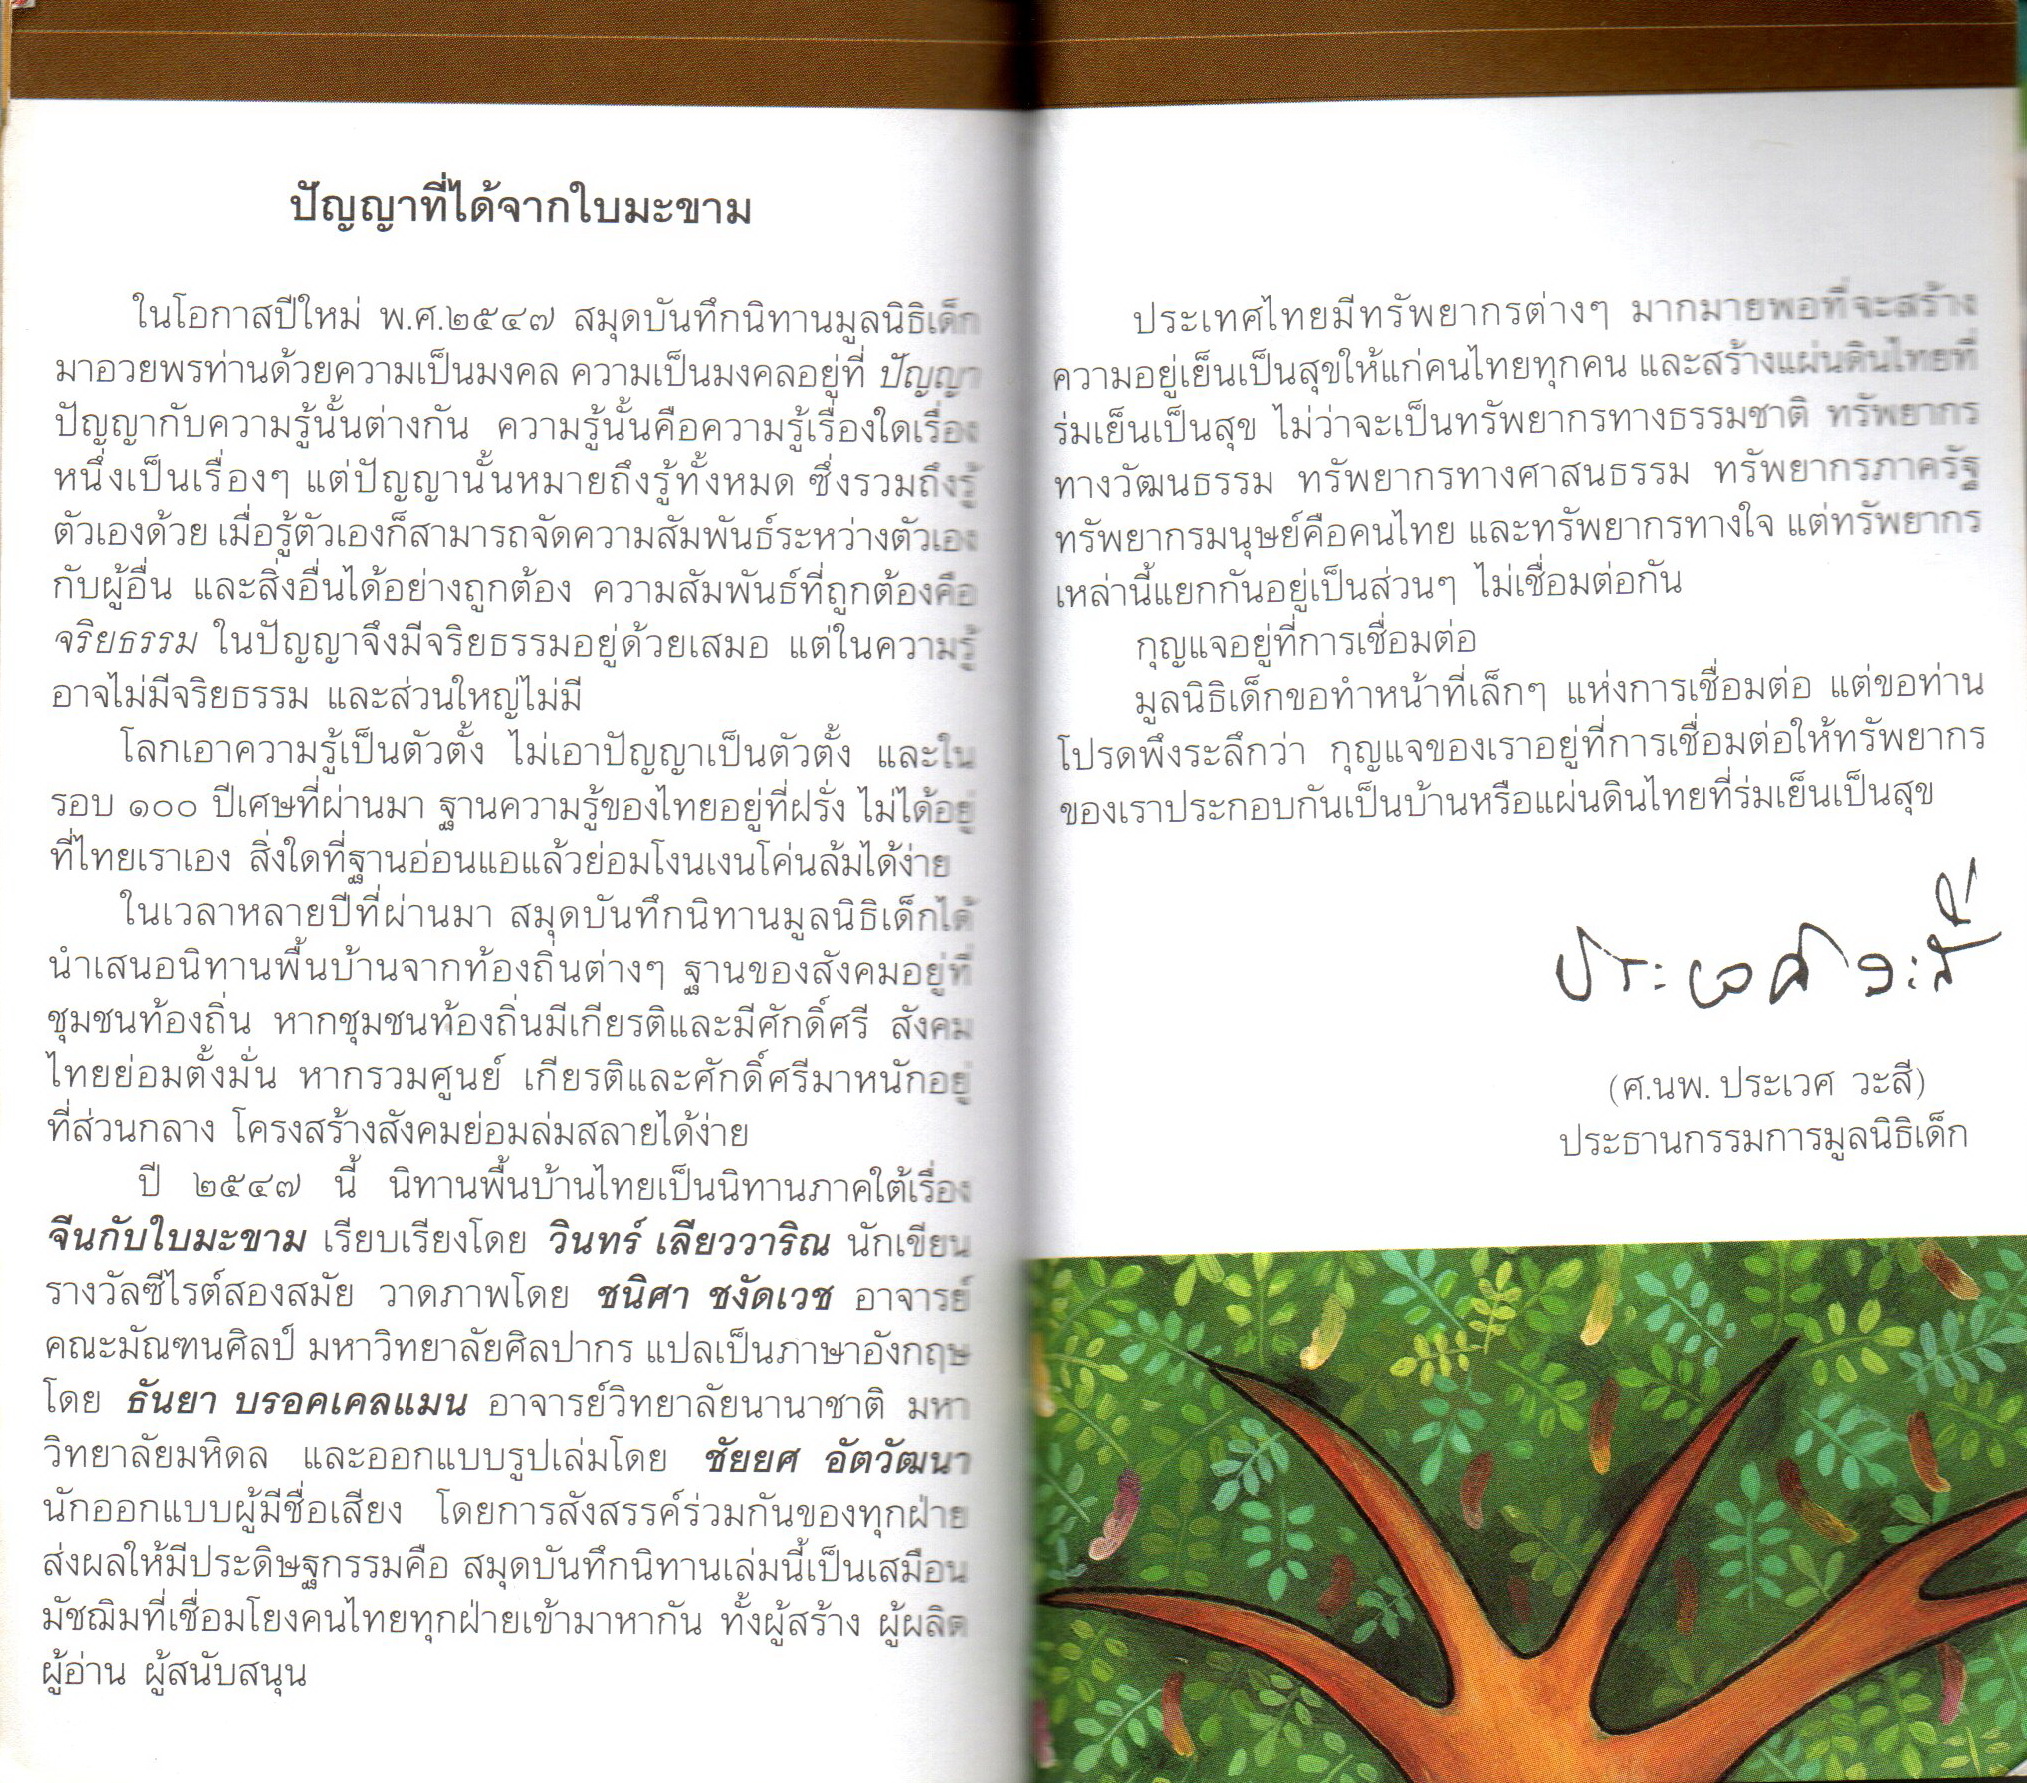 ปัญญาที่ได้จากใบมะขาม
ในโอกาสปีใหม่ พ.ศ.๒๕๔๗ สมุดบันทึกนิทานมูลนิธิเด็ก
มาอวยพรท่านด้วยความเป็นมงคล ความเป็นมงคลอยู่ที่ ปัญญา
ปัญญากับความรู้นั้นต่างกัน ความรู้นั้นคือความรู้เรื่องใดเรื่อง
หนึ่งเป็นเรื่องๆ แต่ปัญญานั้นหมายถึงรู้ทั้งหมด ซึ่งรวมถึงรู้
ตัวเองด้วย เมื่อรู้ตัวเองก็สามารถจัดความสัมพันธ์ระหว่างตัวเอง
กับผู้อื่น และสิ่งอื่นได้อย่างถูกต้อง ความสัมพันธ์ที่ถูกต้องคือ
จริยธรรม ในปัญญาจึงมีจริยธรรมอยู่ด้วยเสมอ แต่ในความรู้
อาจไม่มีจริยธรรม และส่วนใหญ่ไม่มี
โลกเอาความรู้เป็นตัวตั้ง ไม่เอาปัญญาเป็นตัวตั้ง และใน
รอบ ๑๐๐ ปีเศษที่ผ่านมา ฐานความรู้ของไทยอยู่ที่ฝรั่ง ไม่ได้อยู่
ที่ไทยเราเอง สิ่งใดที่ฐานอ่อนแอแล้วย่อมโงนเงนโค่นล้มได้ง่าย
ในเวลาหลายปีที่ผ่านมา สมุดบันทึกนิทานมูลนิธิเด็กได้
นำเสนอนิทานพื้นบ้านจากท้องถิ่นต่างๆ ฐานของสังคมอยู่ที่
ชุมชนท้องถิ่น หากชุมชนท้องถิ่นมีเกียรติและมีศักดิ์ศรี สังคม
ไทยย่อมตั้งมั่น หากรวมศูนย์ เกียรติและศักดิ์ศรีมาหนักอยู่
ที่ส่วนกลาง โครงสร้างสังคมย่อมล่มสลายได้ง่าย
ปี ๒๕๔๗ นี้ นิทานพื้นบ้านไทยเป็นนิทานภาคใต้เรื่อง
จีนกับใบมะขาม เรียบเรียงโดย วินทร์ เลียววาริณ นักเขียน
รางวัลซีไรต์สองสมัย วาดภาพโดย ชนิศา ชงัดเวช อาจารย์
คณะมัณฑนศิลป์ มหาวิทยาลัยศิลปากร แปลเป็นภาษาอังกฤษ
โดย ธันยา บรอคเคลแมน อาจารย์วิทยาลัยนานาชาติ มหา
วิทยาลัยมหิดล และออกแบบรูปเล่มโดย ชัยยศ อัตวัฒนา
นักออกแบบผู้มีชื่อเสียง โดยการสังสรรค์ร่วมกันของทุกฝ่าย
ส่งผลให้มีประดิษฐกรรมคือ สมุดบันทึกนิทานเล่มนี้เป็นเสมือน
มัชฌิมที่เชื่อมโยงคนไทยทุกฝ่ายเข้ามาหากัน ทั้งผู้สร้าง ผู้ผลิต
ผู้อ่าน ผู้สนับสนุน
ประเทศไทยมีทรัพยากรต่างๆ มากมายพอที่จะสร้าง
ความอยู่เย็นเป็นสุขให้แก่คนไทยทุกคน และสร้างแผ่นดินไทยที่
ร่มเย็นเป็นสุข ไม่ว่าจะเป็นทรัพยากรทางธรรมชาติ ทรัพยากร
ทางวัฒนธรรม ทรัพยากรทางศาสนธรรม ทรัพยากรภาครัฐ
ทรัพยากรมนุษย์คือคนไทย และทรัพยากรทางใจ แต่ทรัพยากร
เหล่านี้แยกกันอยู่เป็นส่วนๆ ไม่เชื่อมต่อกัน
กุญแจอยู่ที่การเชื่อมต่อ
มูลนิธิเด็กขอทำหน้าที่เล็กๆ แห่งการเชื่อมต่อ แต่ขอท่าน
โปรดพึงระลึกว่า กุญแจของเราอยู่ที่การเชื่อมต่อให้ทรัพยากร
ของเราประกอบกันเป็นบ้านหรือแผ่นดินไทยที่ร่มเย็นเป็นสุข
ประเวศ วะสี
(ศ.นพ. ประเวศ วะสี)
ประธานกรรมการมูลนิธิเด็ก